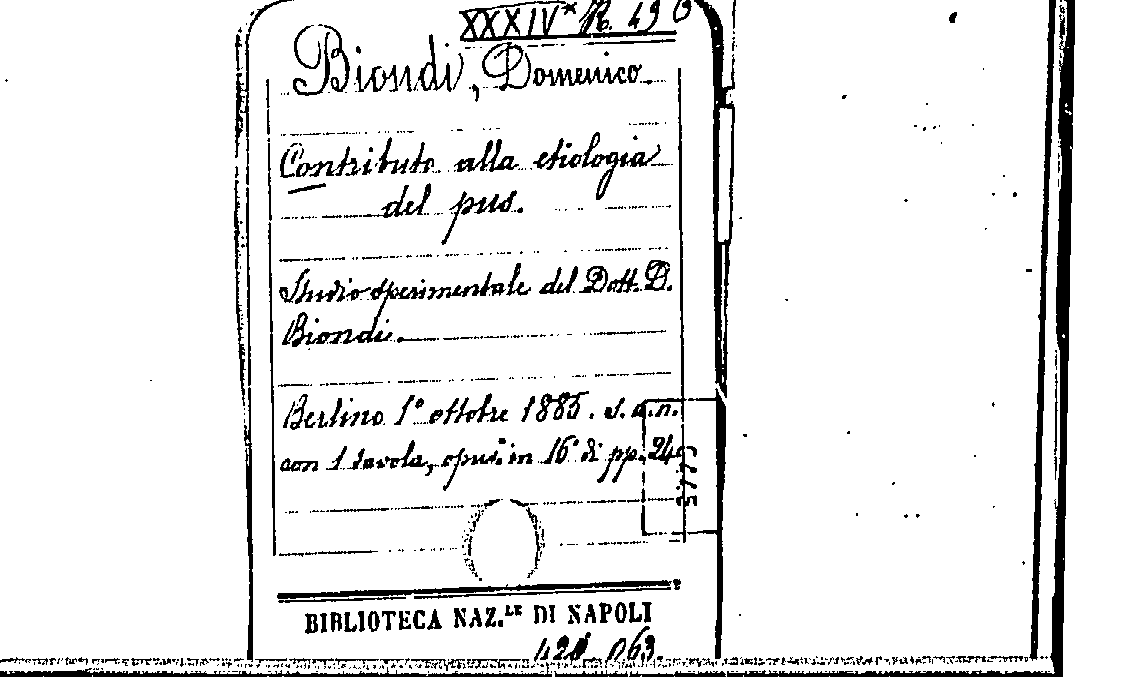 XXXIV* R. 49
Biondi, Domenico
Contributo alla etiologia
del pus.
Studio sperimentale del Dott. D.
Biondi.
Berlino 1° ottobre 1885. s. a. n.
con 1 tavola, opus. in 16° di pp. 24
BIBLIOTECA NAZ.LE DI NAPOLI
063.